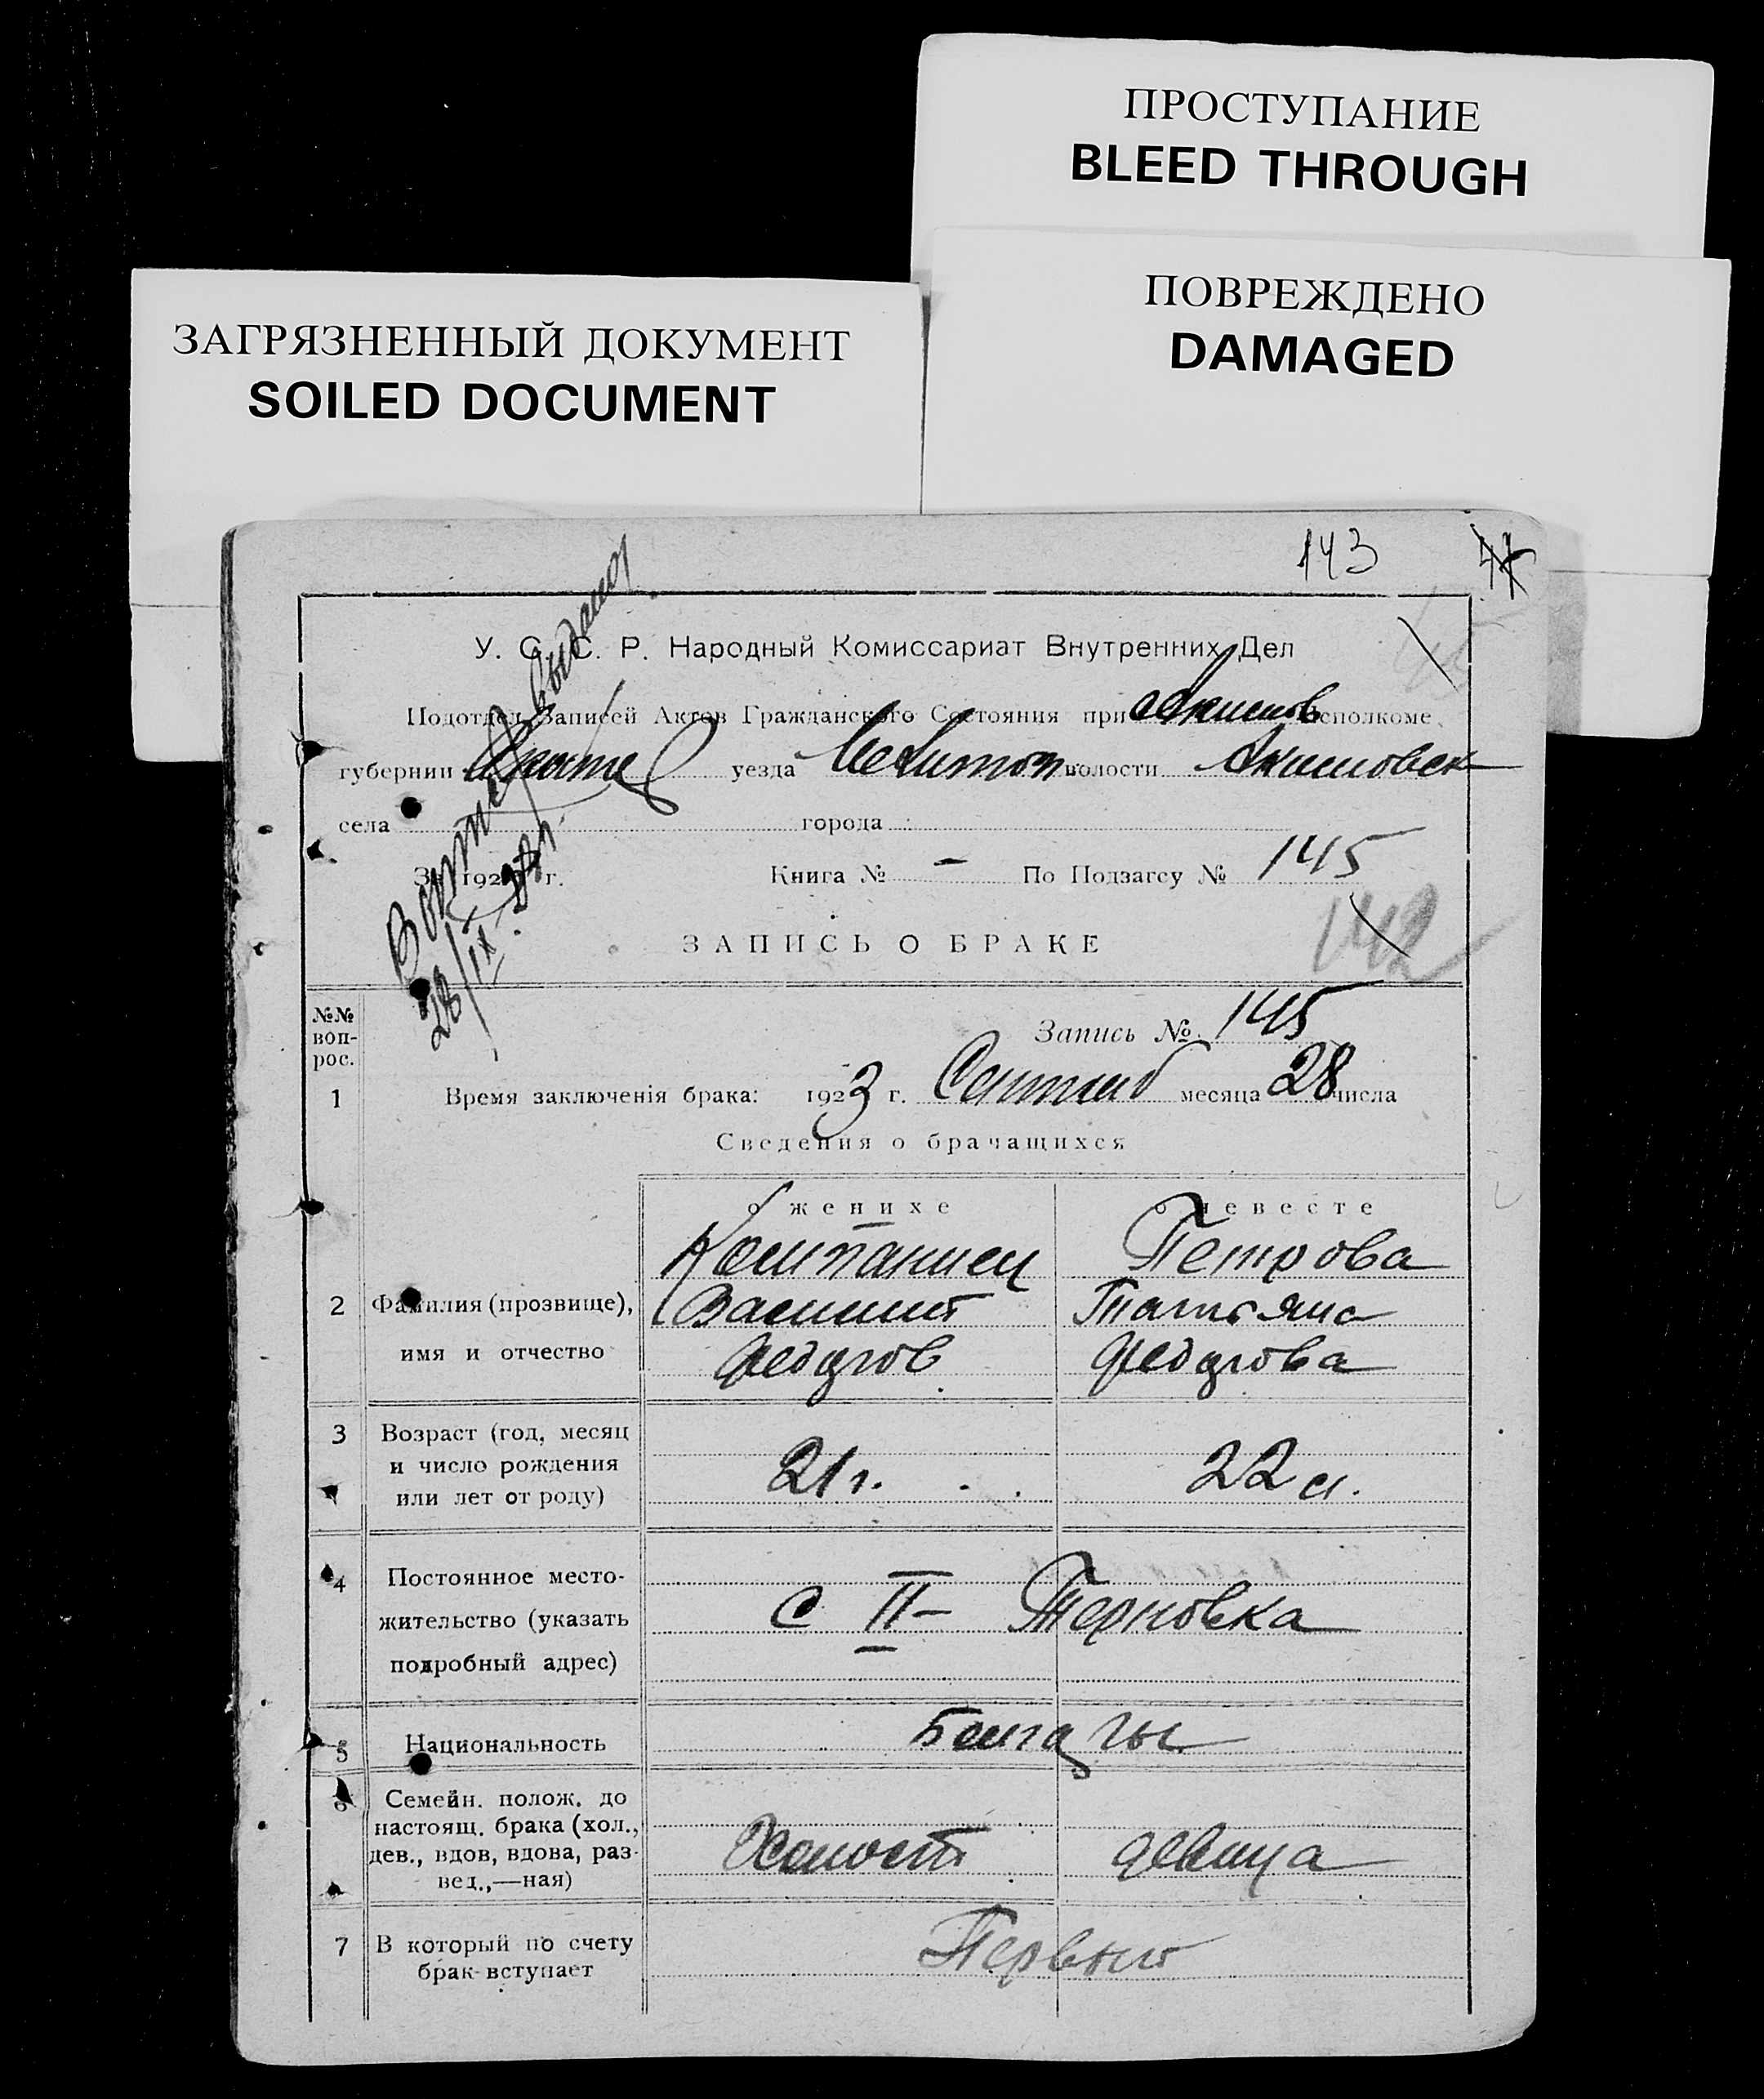 ПРОСТУПАНИЕ
BLEED THROUGH
ПОВРЕЖДЕНО
DAMAGED
ЗАГРЯЗНЕННЫЙ ДОКУМЕНТ
SOILED DOCUMENT
143 44
У. С. С. Р. Народный Комиссариат Внутренних Дел
Подотдел Записей Актов Гражданского Состояния при Акимов Исполкоме
губернии уезда Мелитоп волости Акимовск
села города
За 192 г. Книга № — По Подзагсу № 145
выдана
28/IX
ЗАПИСЬ О БРАКЕ
142
№№ воп-рос.
Запись № 145
1 Время заключенія брака: 1923 г. Сентяб месяца 28 числа
Сведения о брачащихся
о женихе о невесте
Компаниец Петрова
2 Фамилия (прозвище), Василий Татьяна
имя и отчество Федоров Федорова
3 Возраст (год, месяц
и число рождения 21 г. 22 л.
или лет от роду)
4 Постоянное место-
жительство (указать с II - Терновка
подробный адрес)
5 Национальность Болгары
6 Семейн. полож. до
настоящ. брака (хол.,
дев., вдов, вдова, раз- Холост девица
вед.,—ная)
7 В который по счету Первый
брак вступает